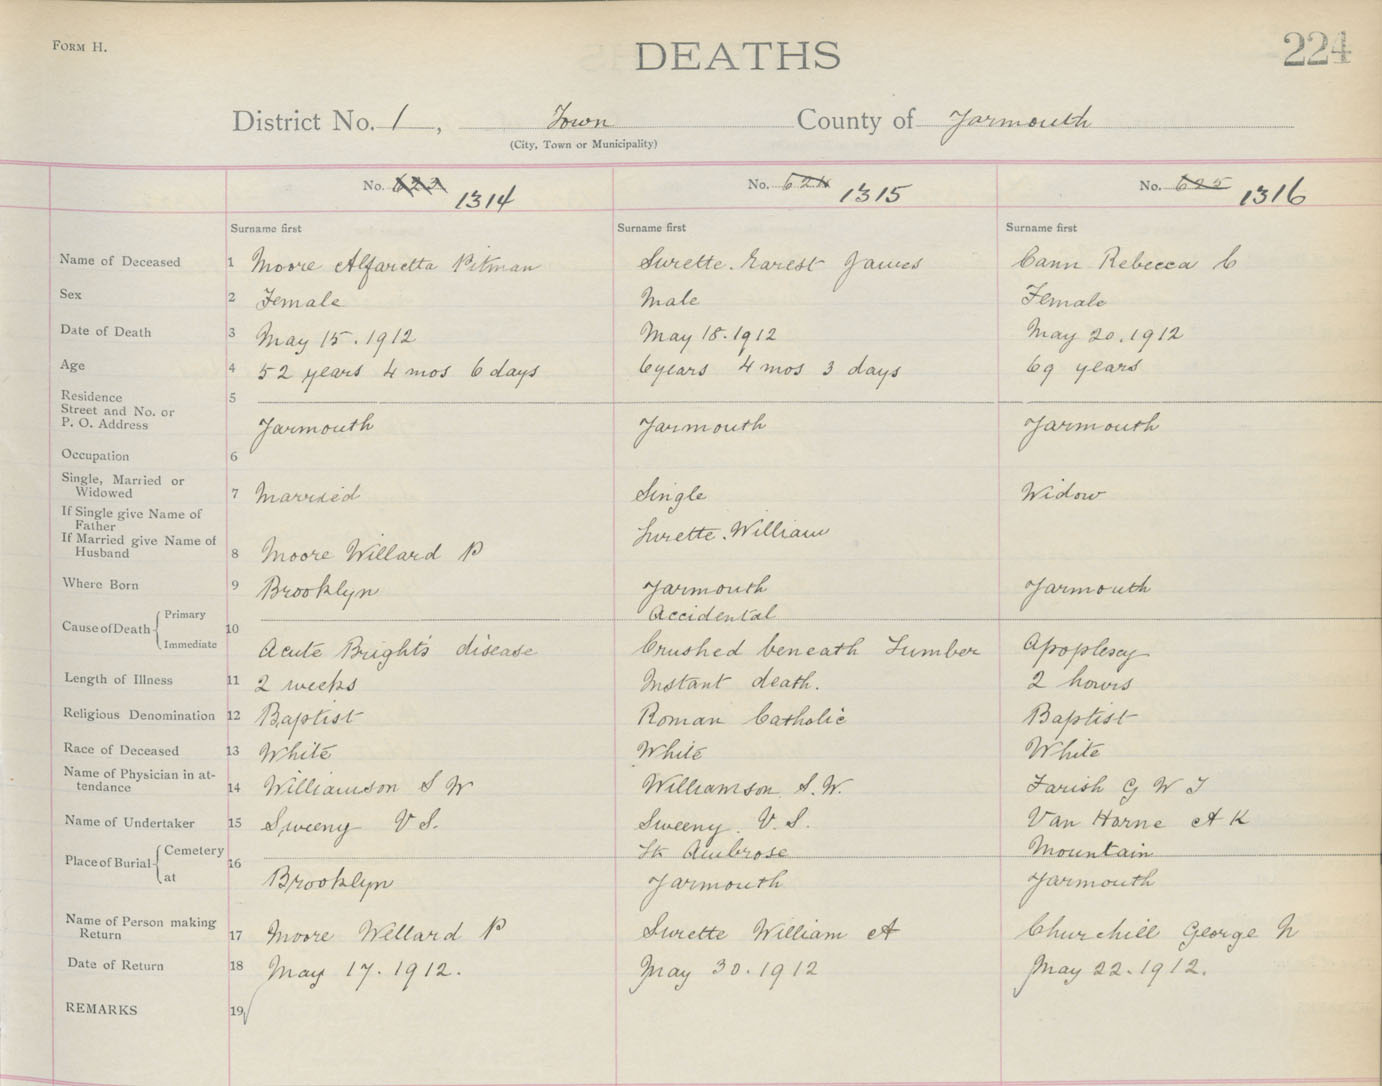 FORM H.
DEATHS
224
District No. 1, Town County of Yarmouth
(City, Town or Municipality)
No. 623 1314 No. 624 1315 No. 625 1316
Surname first Surname first Surname first
Name of Deceased 1 Moore Alfaretta Pitman Surette. Earest James Cann Rebecca C
Sex 2 Female Male Female
Date of Death 3 May 15. 1912 May 18. 1912 May 20. 1912
Age 4 52 years 4 mos 6 days 6 years 4 mos 3 days 69 years
Residence 5
Street and No. or
P. O. Address Yarmouth Yarmouth Yarmouth
Occupation 6
Single, Married or
Widowed 7 Married Single Widow
If Single give Name of
Father Surette. William
If Married give Name of
Husband 8 Moore Willard P
Where Born 9 Brooklyn Yarmouth Yarmouth
Cause of Death 10 Primary Accidental
Immediate Acute Bright's disease Crushed beneath Lumber Apoplexy
Length of Illness 11 2 weeks Instant death. 2 hours
Religious Denomination 12 Baptist Roman Catholic Baptist
Race of Deceased 13 White White White
Name of Physician in at-
tendance 14 Williamson S W Williamson. S. W. Farish G W T
Name of Undertaker 15 Sweeny V S. Sweeny. V. S. Van Horne A K
Place of Burial 16 Cemetery St Ambrose Mountain
at Brooklyn Yarmouth Yarmouth
Name of Person making
Return 17 Moore Willard P Surette William A Churchill George N
Date of Return 18 May 17. 1912. May 30. 1912 May 22. 1912.
REMARKS 19